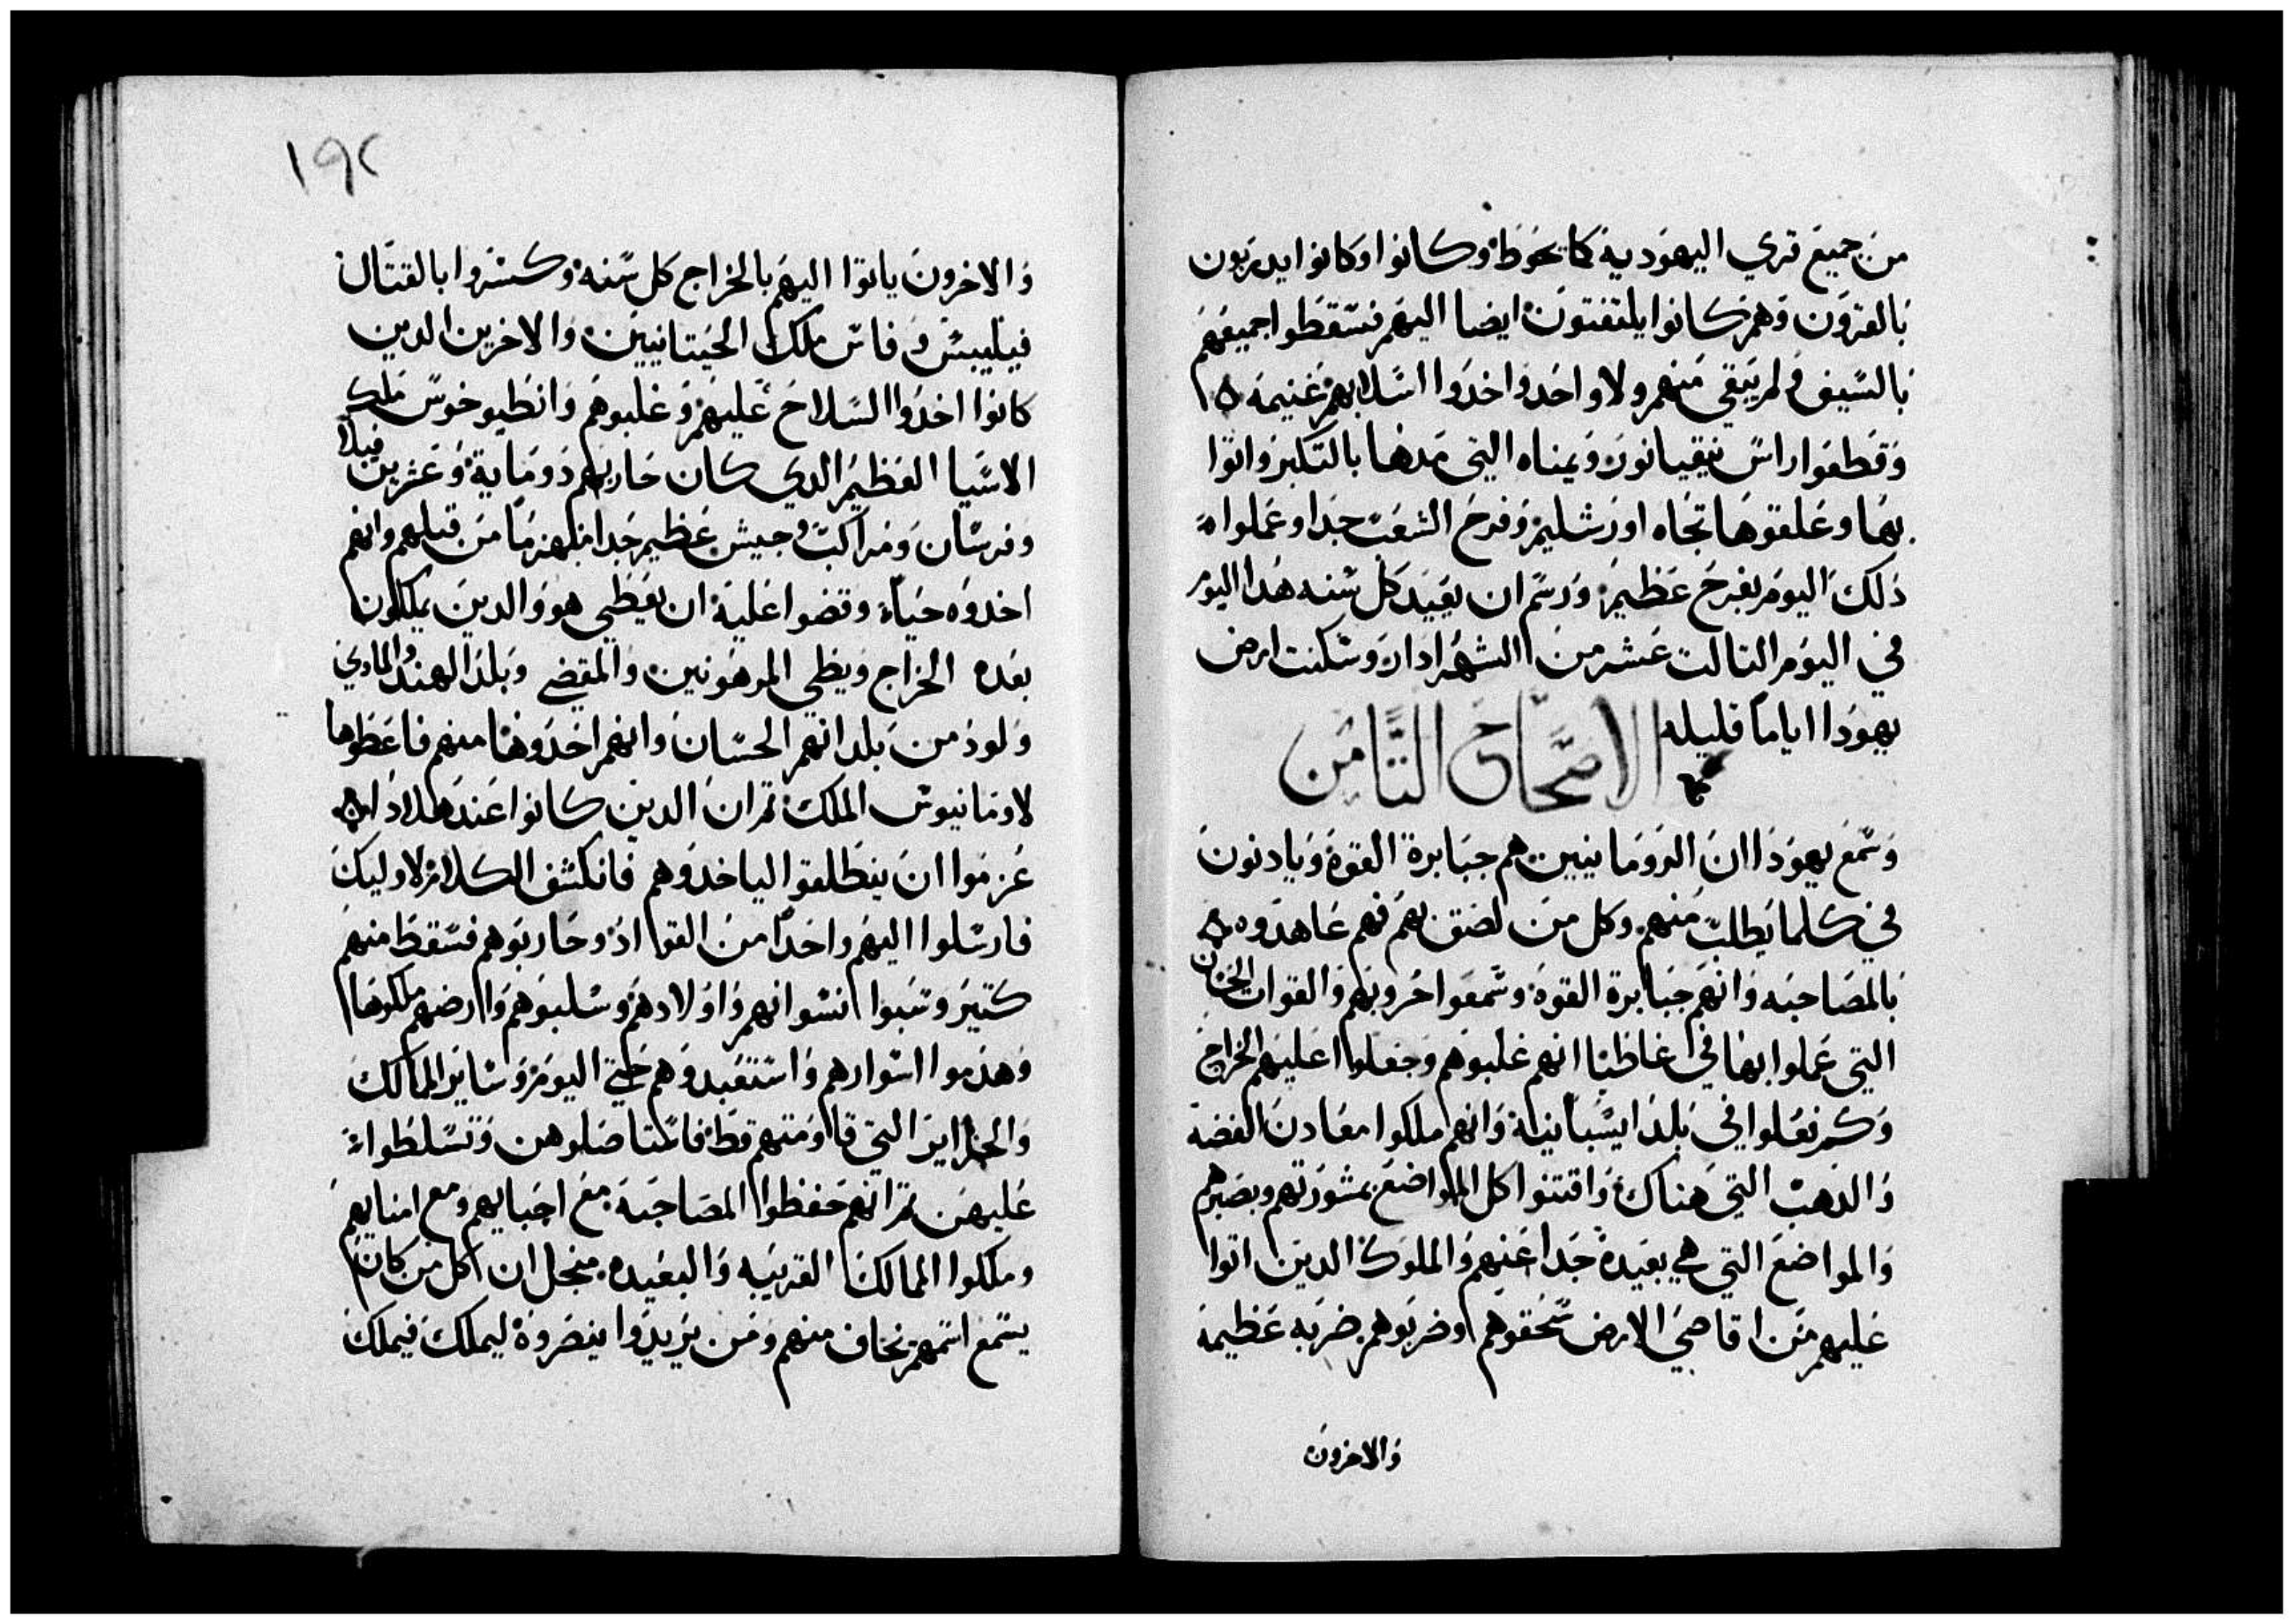 من جميع قري اليهودية كما يحوط وكانوا وكانوا يدربون
بالقرون وهم كانوا يلتفتون ايضا اليهم فسقطوا جميعهم
بالسيف ولم يبقي منهم ولا واحد واخدوا اسلابهم غنيمه
وقطعوا راس نيقيانون ويمناه التي مدها بالتكبر واتوا
بهما وعلقوها تجاه اورشليم وفرح الشعب جدا وعملوا
دلك اليوم بفرح عظيم ورسم ان يعيد كل سنه هدا اليوم
في اليوم التالت عشر من الشهر ادار وسكنت ارض
يهودا اياما قليله
الاصحاح التامن
وسمع يهودا ان الرومانيين هم جبابرة القوة ويادنون
في كلما يطلب منهم وكل من لصق بهم فهم عاهدوه
بالمصاحبه وانهم جبابرة القوة وسمعوا حروبهم والقوات الحسان
التي عملوا بها في غاظيا انهم غلبوهم وجعلوا عليهم الخراج
وكم فعلوا في بلد ايسبانية وانهم ملكوا معادن الفضه
والدهب التي هناك واقتنوا كل المواضع بمشورتهم وبصبرهم
والمواضع التي هي بعيدة جدا عنهم والملوك الدين اتوا
عليهم من اقاصي الارض سحقوهم وضربوهم ضربه عظيمة
والاخرون
١٩٢
والاخرون ياتوا اليهم بالخراج كل سنه وكسروا بالقتال
فيليبس وفاس ملك الحيتانيين والاخرين الدين
كانوا اخدوا السلاح عليهم وغلبوهم وانطيوخوس ملك
الاسيا العظيم الدي كان حاربهم دو ماية وعشرين فيلا
وفرسان ومراكب وجيش عظيم جدا منهزما من قبلهم وانهم
اخدوه حيا وقضوا عليه ان يعطي هو والدين يملكون
بعده الخراج ويعطي المرهونين والمقضي وبلد الهند والمادي
ولود من بلدانهم الحسان وانهم اخدوها منهم فاعطوها
لاومانيوس الملك تم ان الدين كانوا عند هلادا
عزموا ان ينطلقوا لياخدوهم فانكشف الكلام لاوليك
فارسلوا اليهم واحدا من القواد وحاربوهم فسقط منهم
كتير وسبوا نسوانهم واولادهم وسلبوهم وارضهم ملكوها
وهدموا اسوارهم واستعبدوهم حتي اليوم وساير الممالك
والجزاير التي قاومتهم قط فاستاصلوهن وتسلطوا
عليهن تم انهم حفظوا المصاحبه مع احبايهم ومع امنايهم
وملكوا الممالك القريبه والبعيده منجل ان كل من كان
يسمع اسمهم يخاف منهم ومن يريدوا ينصروه ليملك فيملك